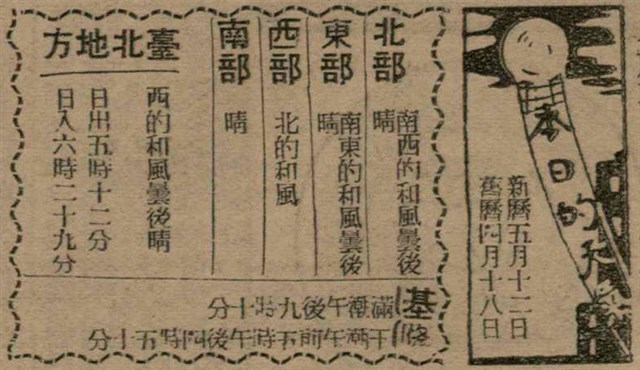 本日的天
新曆五月十二日
舊曆四月十八日
北部
南西的和風曇後
晴
東部
南東的和風曇後
晴
西部
北的和風
南部
晴
臺北地方
西的和風曇後晴
日出五時十二分
日入六時二十九分
基隆
滿潮午後九時十分
干潮午前五時午後四時五十分